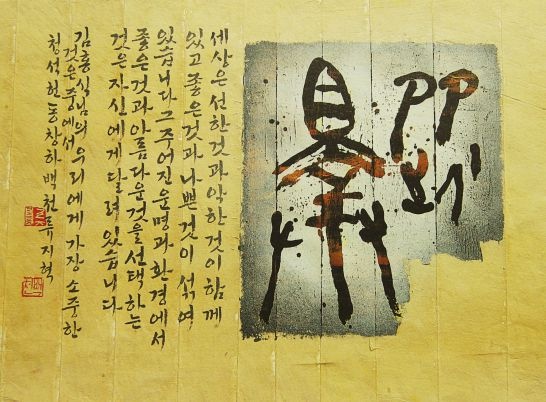 세상은 선한것과 악한것이 함께
있고 좋은것과 나쁜것이 섞여
있습니다 그 주어진 운명과 환경에서
좋은것과 아름다운것을 선택하는
것은 자신에게 달려 있습니다
김홍식님의 우리에게 가장 소중한
것은 중에서
청석헌 동창하 백천 류지혁